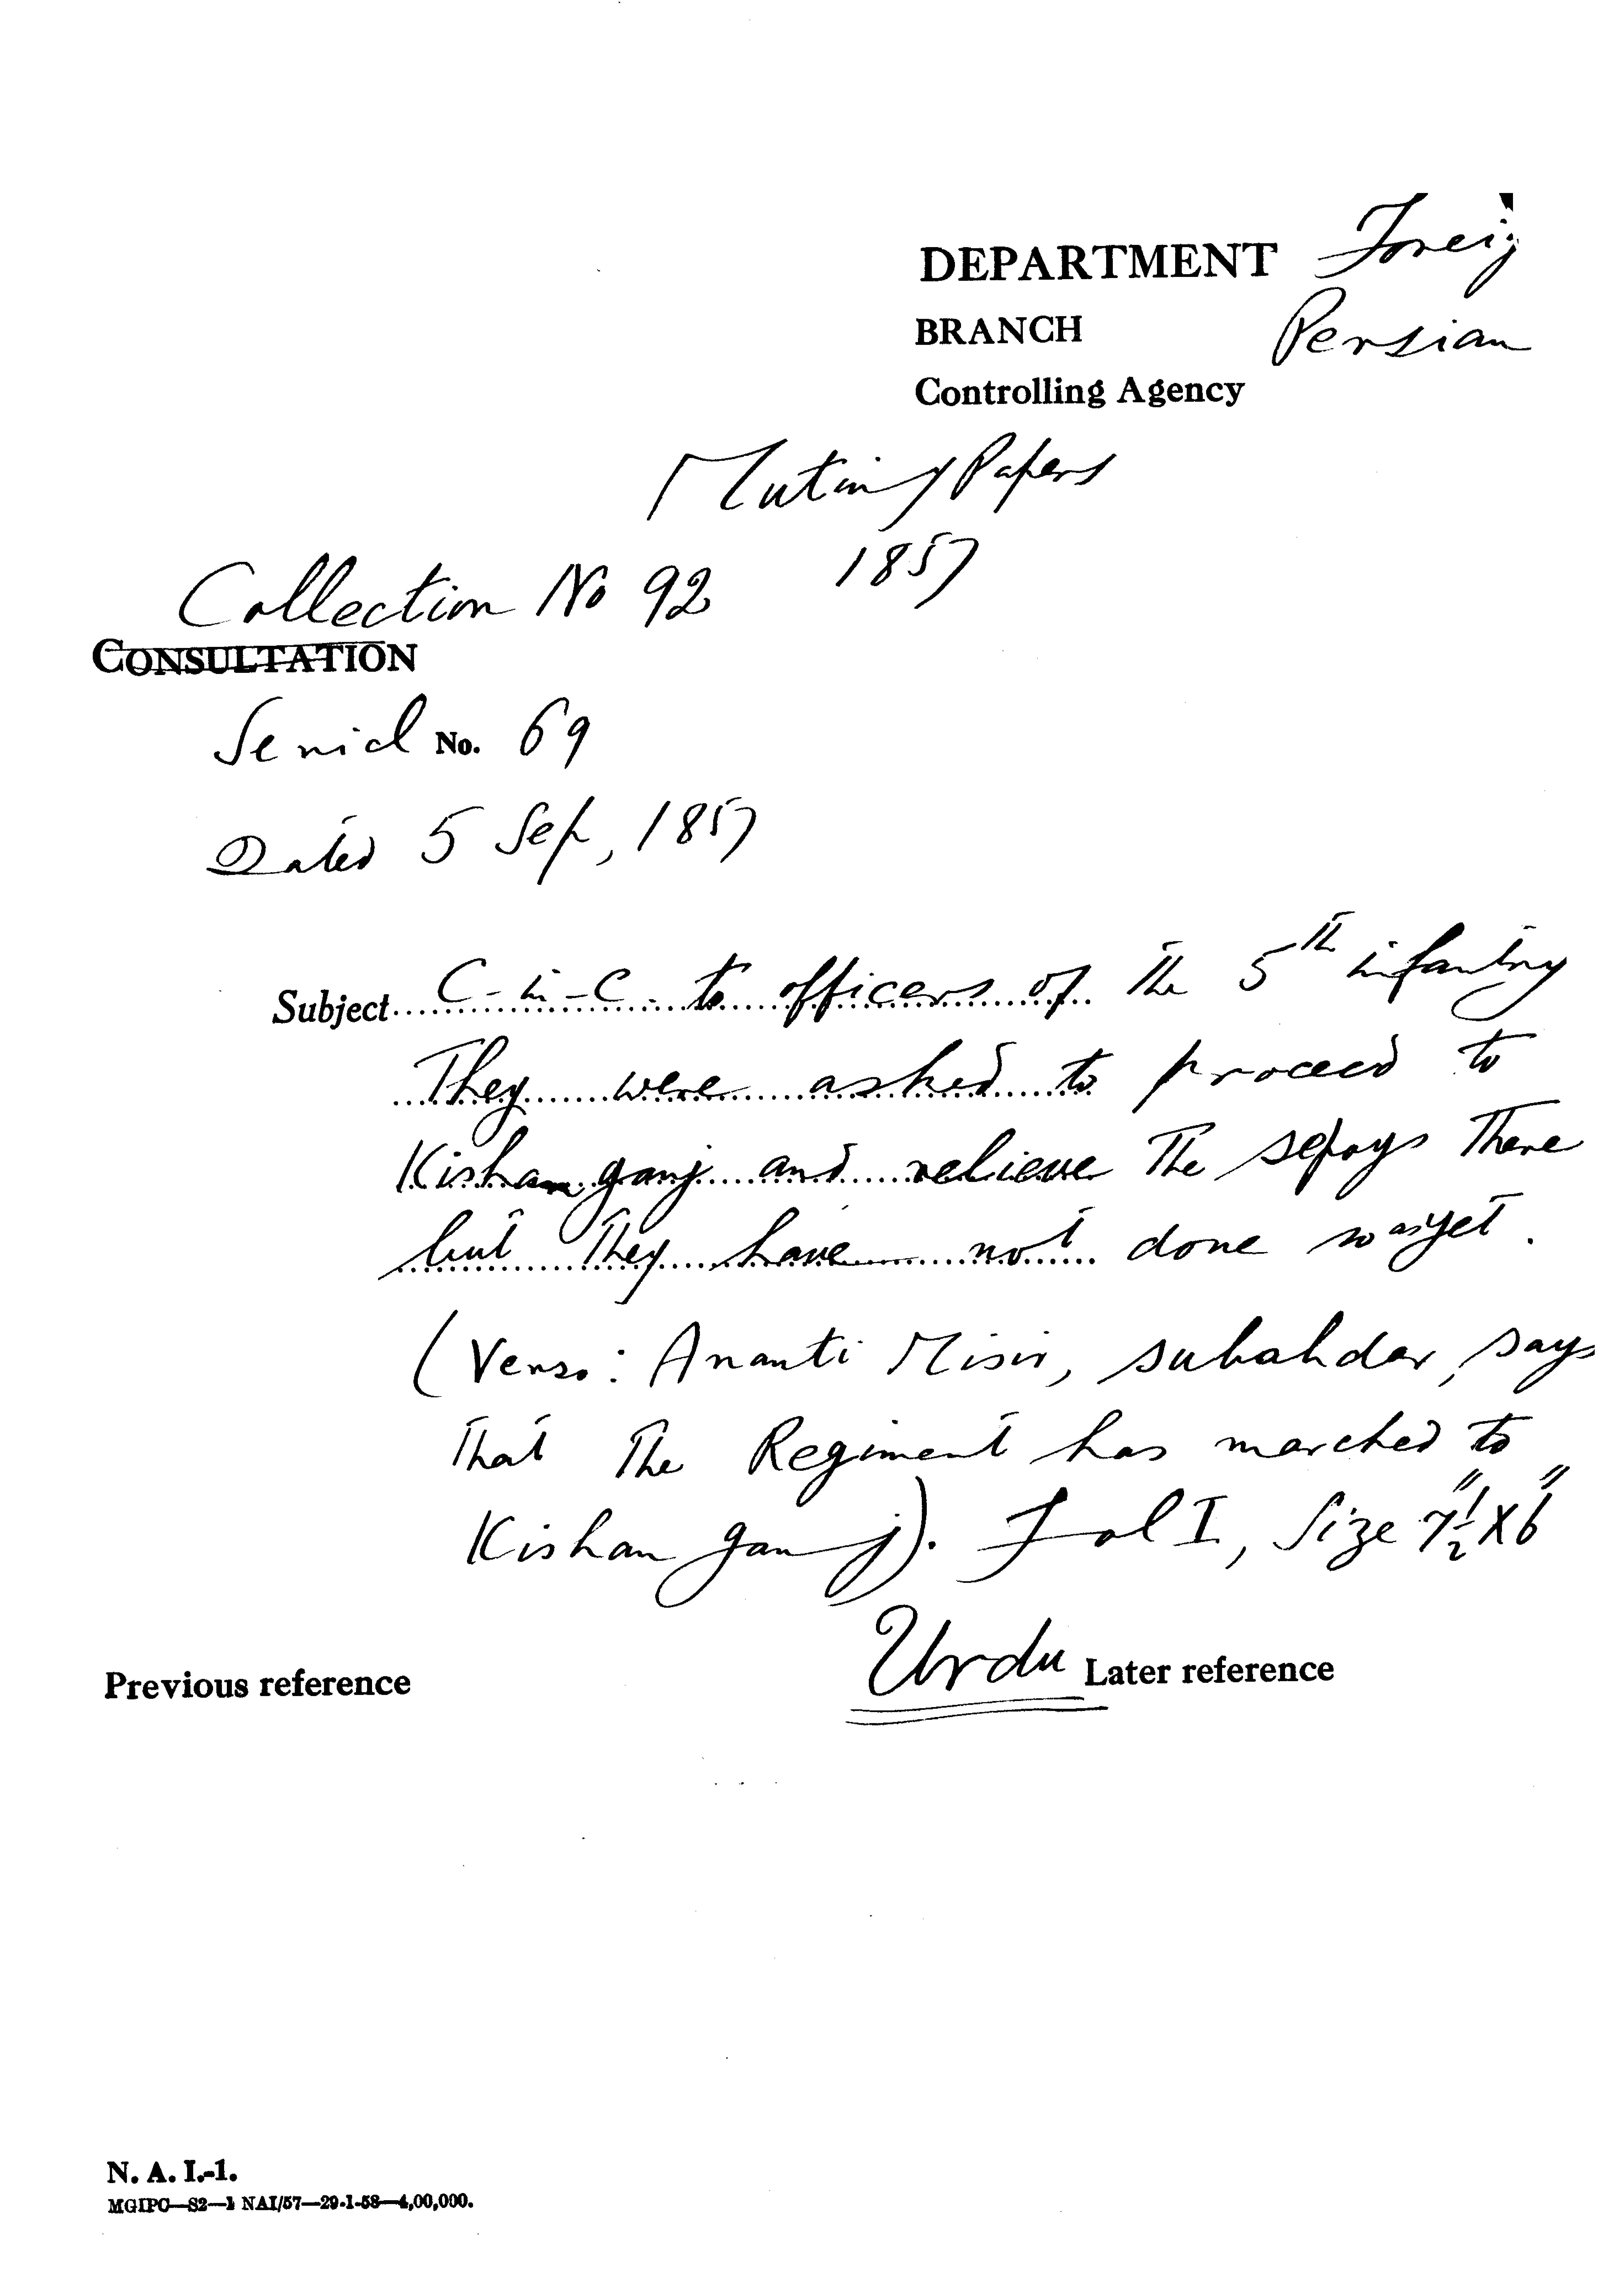 DEPARTMENT Foreig
BRANCH Persian
Controlling Agency
Mutiny Papers
1857
Collection No 92
CONSULTATION
Serial No. 69
Dated 5 Sep, 1857
Subject C-in-C to officers of the 5th infantry
They were asked to proceed to
Kishanganj and relieve the sepoys there
but they have not done so as yet.
(Verso: Ananti Misir, subahdar, says
that the Regiment has marched to
Kishan ganj). Fol I, Size 7½" X 6"
Urdu
Previous reference Later reference
N. A. I.-1.
MGIPC—S2—1 NAI/57—29-1-58—4,00,000.